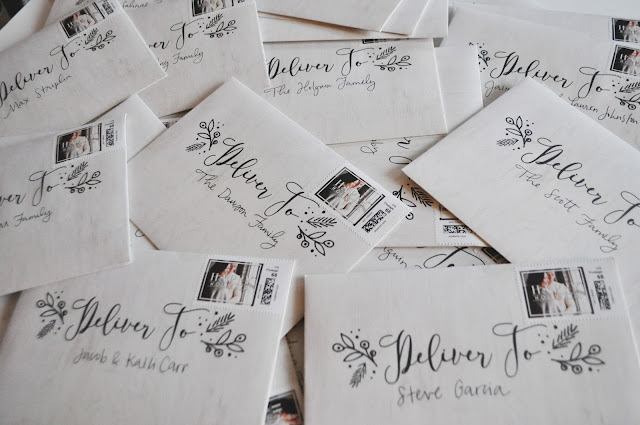 Deliver To
Max Straplin
Deliver To
Family
Deliver To
The Holgun Family
Deliver To
Lauren Johnston
Family
Deliver To
The Dawson Family
Deliver To
The Scott Family
Deliver To
Jacob & Kath Carr
Deliver To
Steve Garcia